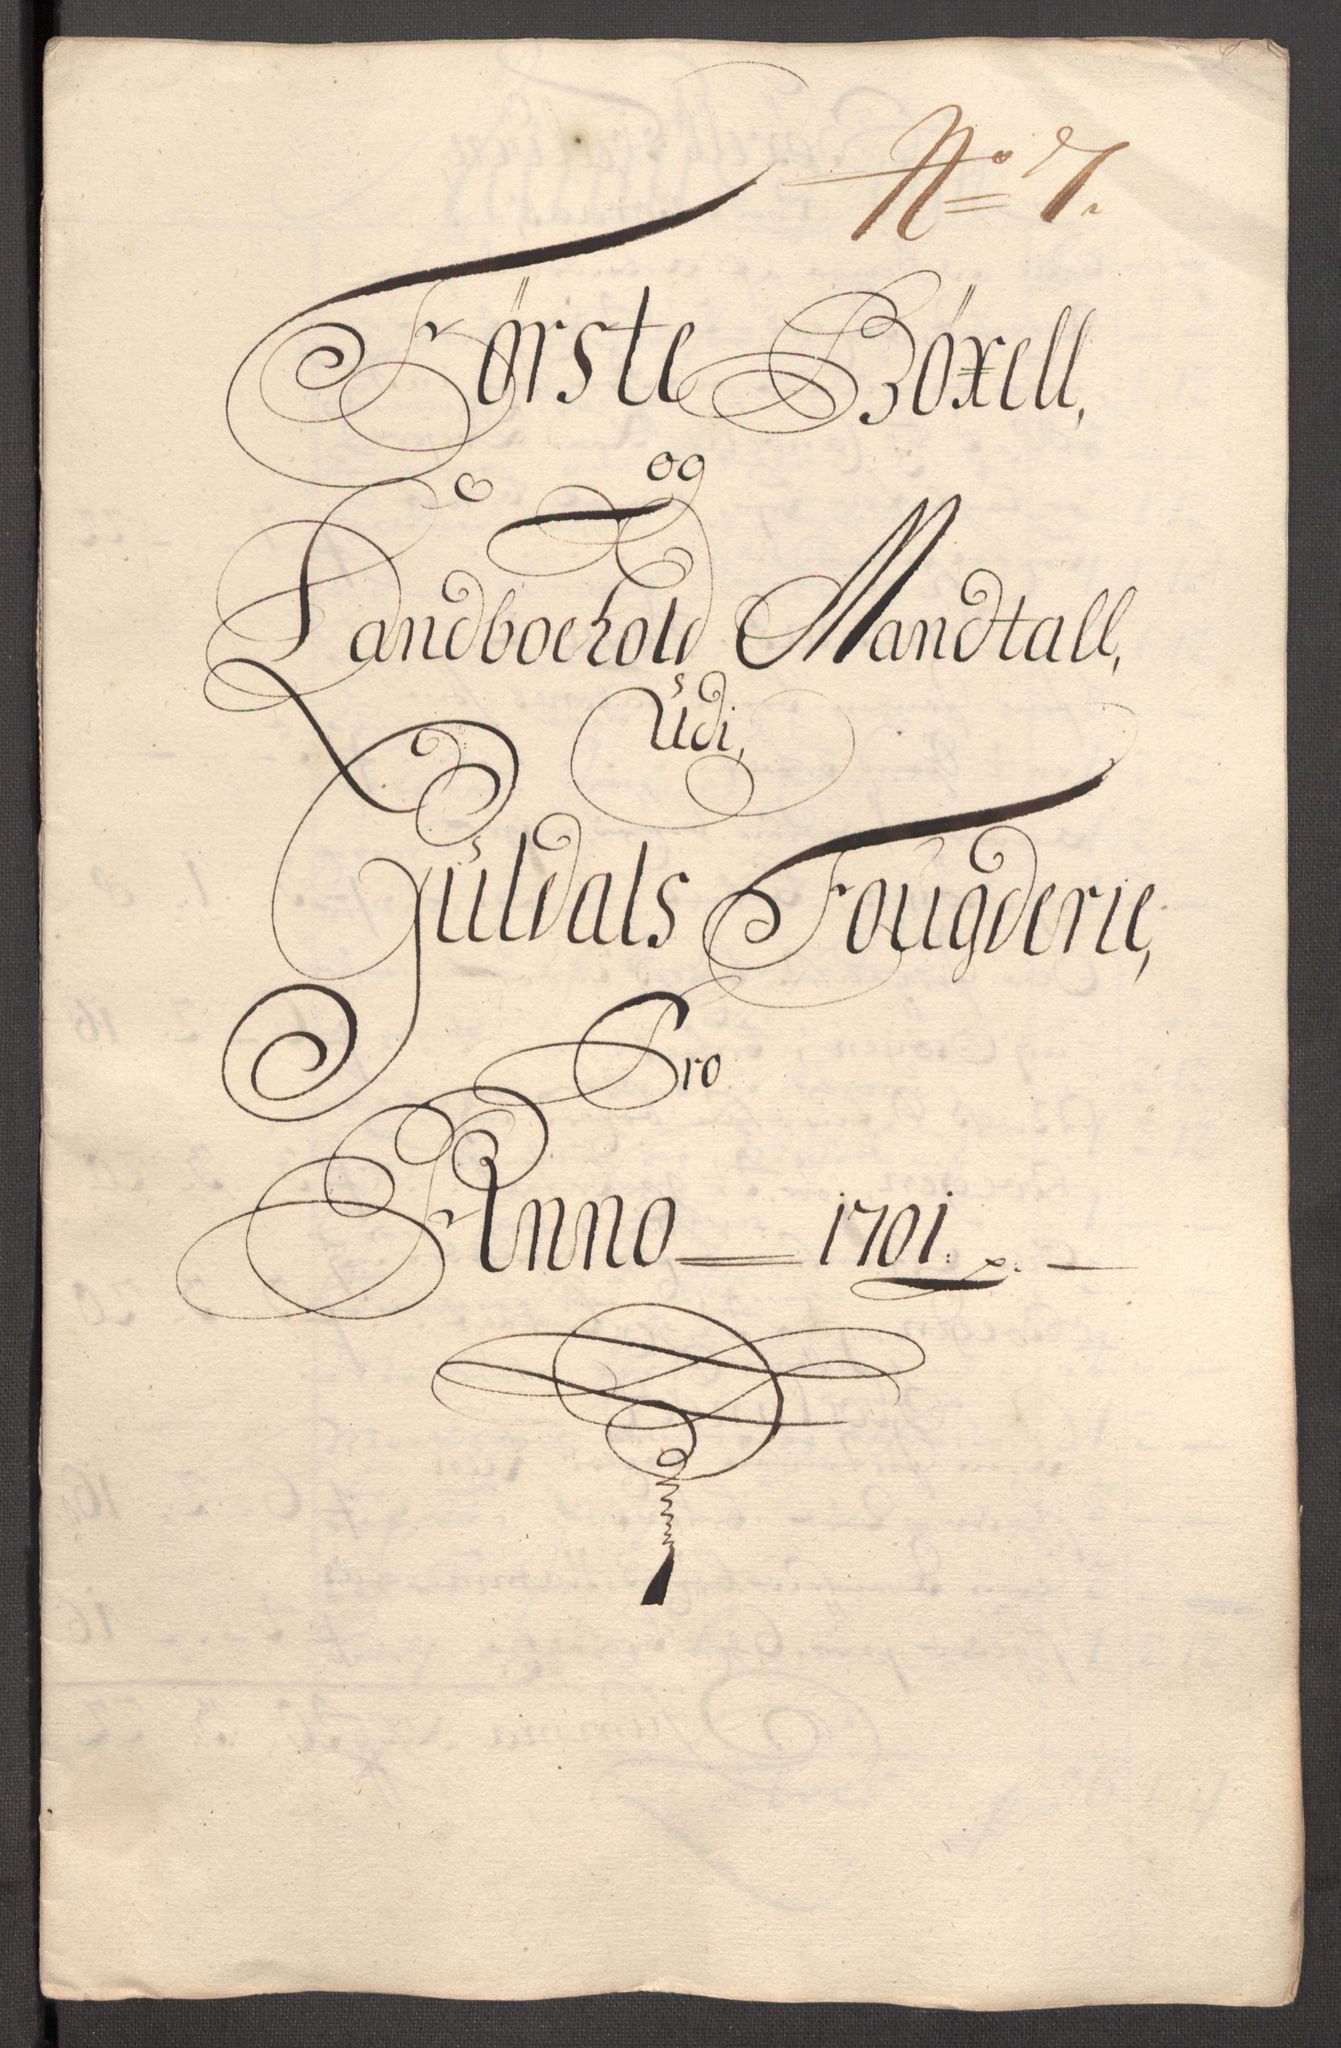 No 7.
Første Böxell,
og
Landboehold Mandtall,
Udi,
Guldals Fougderie,
Pro
Anno 1701.